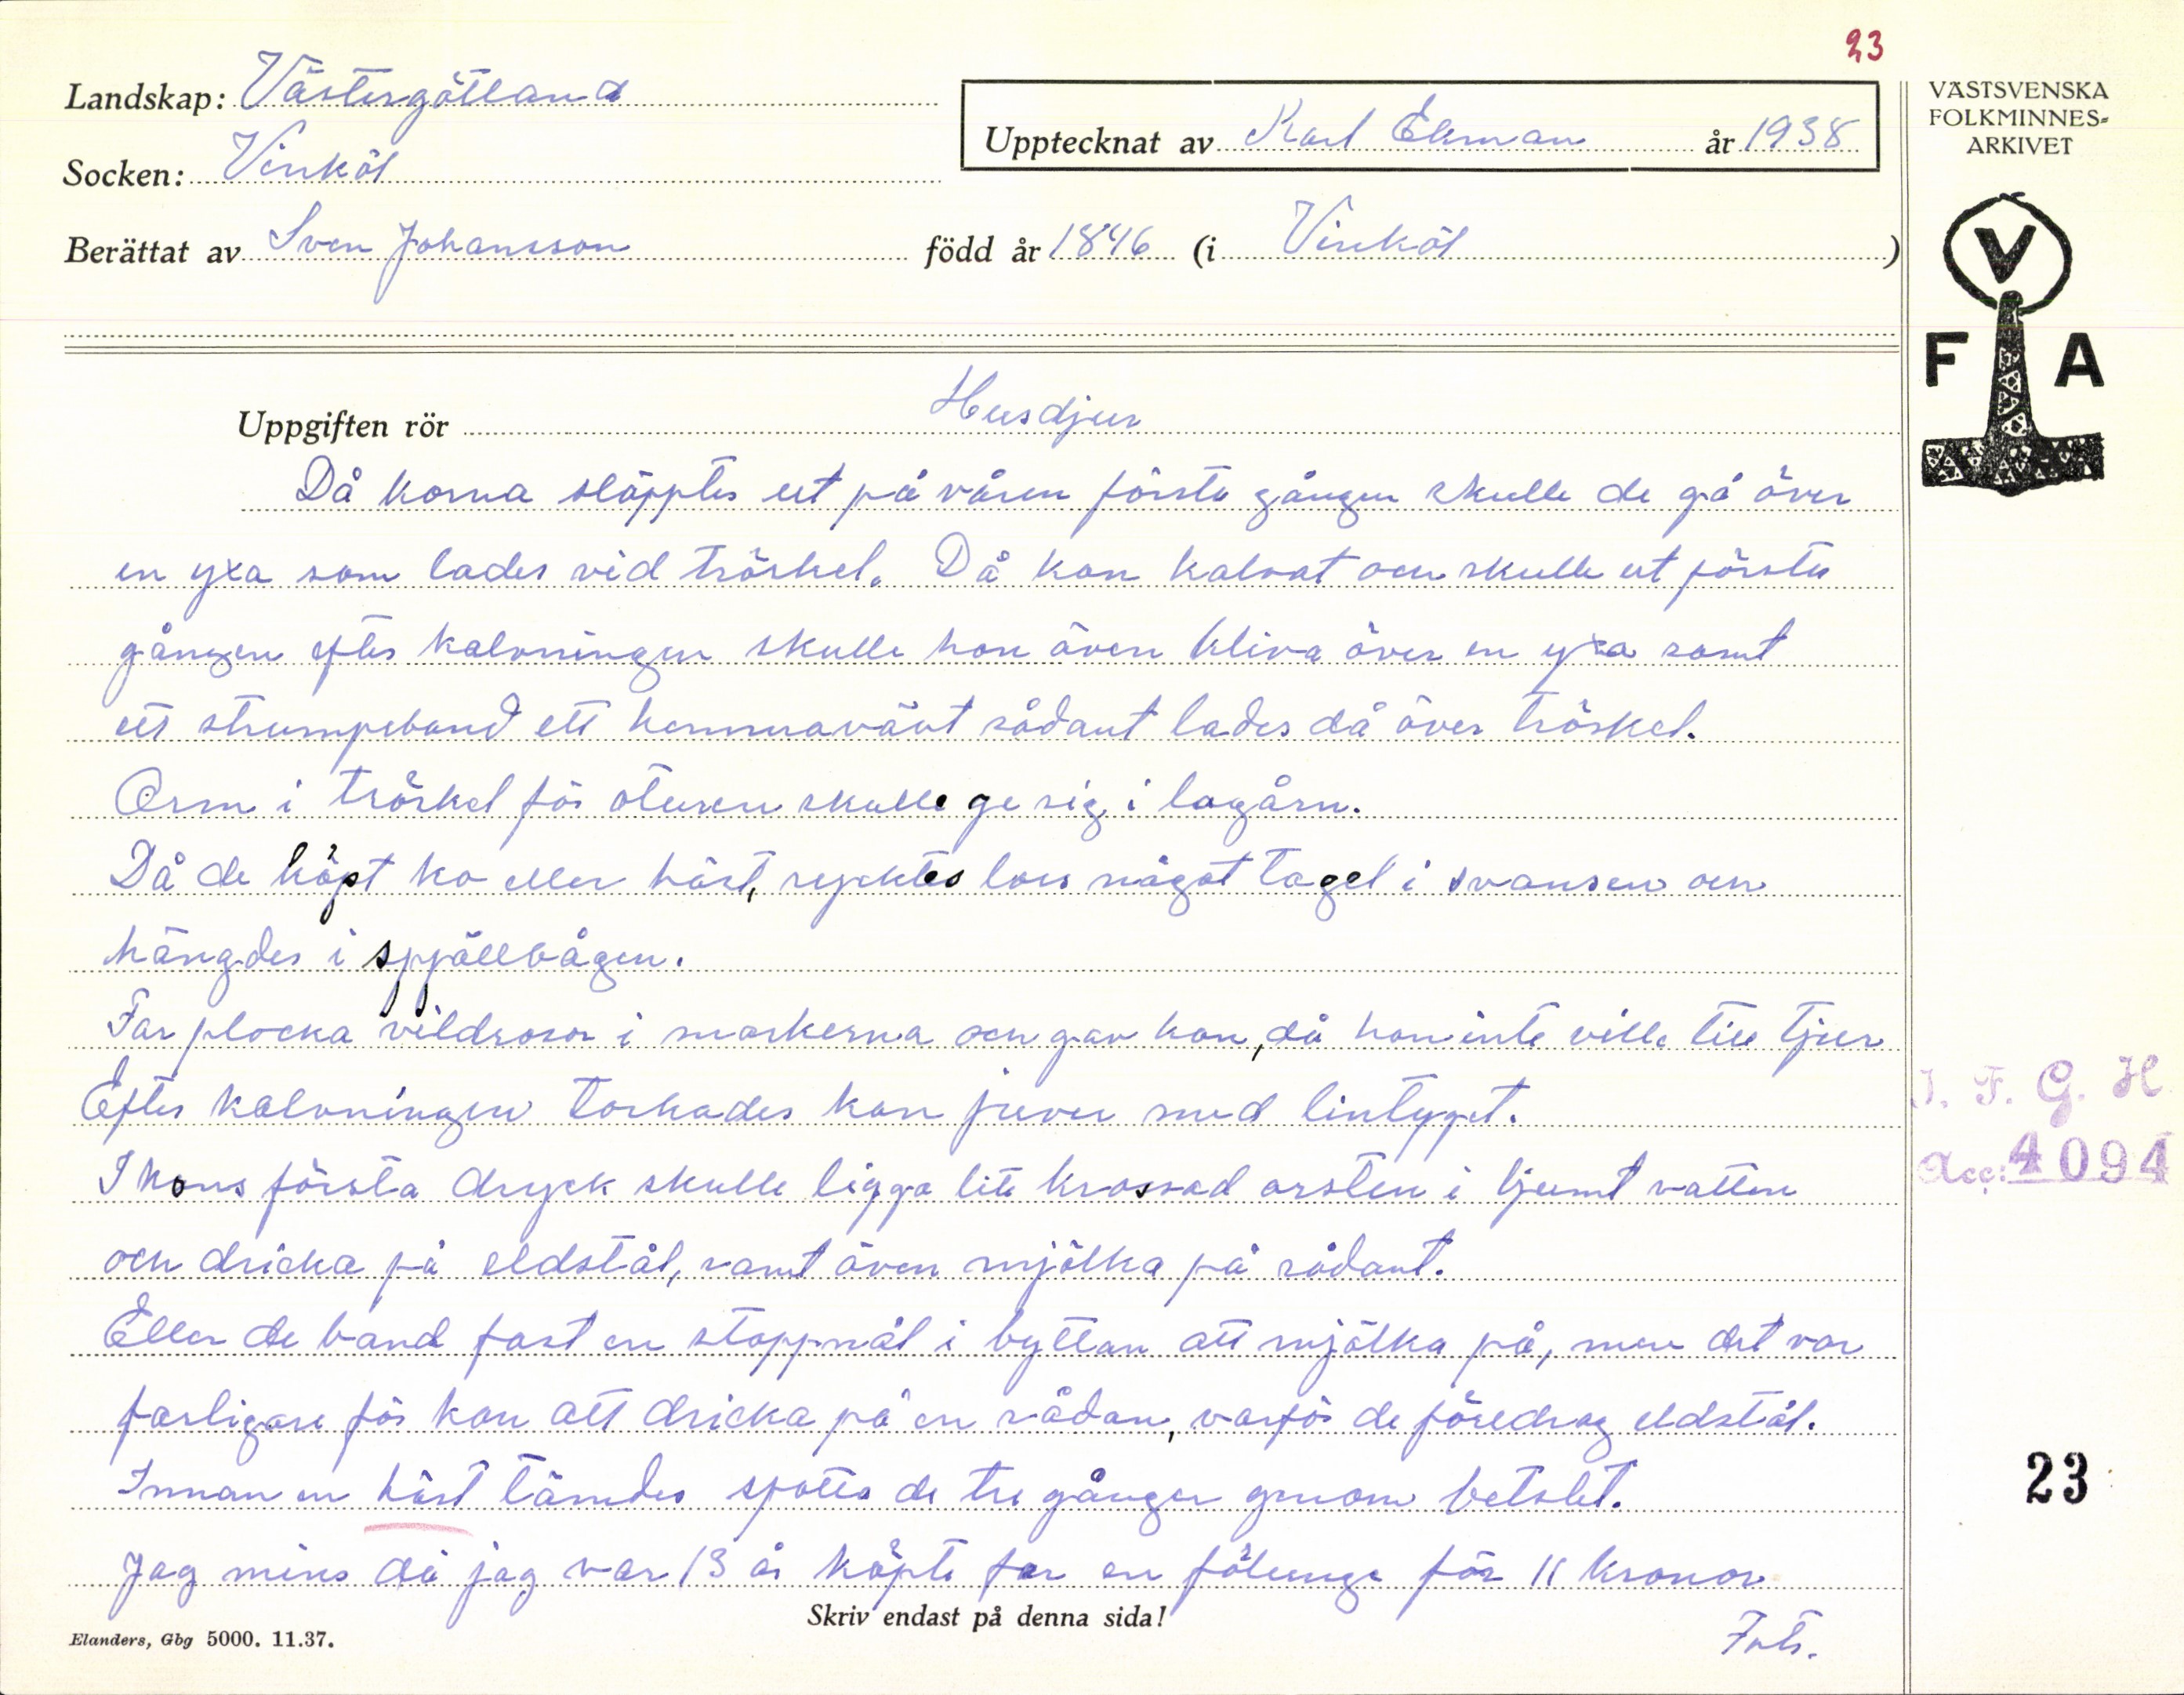 23
Landskap: Västergötland
Socken: Vinköl
Upptecknat av Karl Ekman år 1938
Berättat av Sven Johansson född år 1846 (i Vinköl)
VÄSTSVENSKA
FOLKMINNES=
ARKIVET
V
F A
Uppgiften rör Husdjur
Då korna släpptes ut på våren första gången skulle de gå över
en yxa som lades vid tröskel. Då kon kalvat och skulle ut första
gången efter kalvningen skulle hon även kliva över en yxa samt
ett strumpeband ett hemmavävt sådant lades då över tröskel.
Orm i tröskel för oturen skulle ge sig i lagårn.
Då de köpt ko eller häst, rycktes loss något tagel i svansen och
hängdes i spjällbågen.
Far plocka vildrosor i markerna och gav kon, då hon inte ville till tjur
Efter kalvningen torkades kon juver med lintyget.
I kons första dryck skulle ligga lite krossad orsten i ljumt vatten
och dricka på eldstål, samt även mjölka på sådant.
Eller de band fast en stoppnål i byttan att mjölka på, men det var
farligare för kon att dricka på en sådan, varför de föredrog eldstål.
Innan en häst tämdes spottes de tre gånger genom betslet.
Jag mins då jag var 13 år köpte far en fölunge för 11 kronor
Forts.
Skriv endast på denna sida!
Elanders, Gbg 5000. 11.37.
I. F. G. H.
Acc: 4094
23